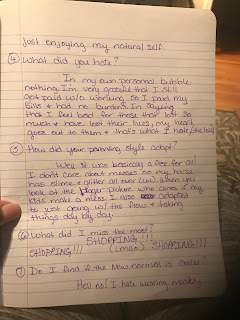 just enjoying my natural self.
④ What did you hate?
In my own personal bubble
nothing. I'm very grateful that I still
got paid w/o working so I paid my
bills & had no burdens. In saying
that I feel bad for those that lost so
much & have lost their lives, my heart
goes out to them & that's what I hate, the lost
⑤ How did your parenting style adapt?
Well it was basically a free for all
I don't care about messes so my house
has slime & glitter all over (lol). When you
look at the bigger picture who cares if my
kids make a mess. I also adapted
to just going w/ the flow & taking
things day by day.
⑥ What did I miss the most?
SHOPPING!!!
SHOPPING!!! (lmao) SHOPPING!!!
⑦ Do I find if the New normal is crazy?
Hell no! I hate wearing masks,